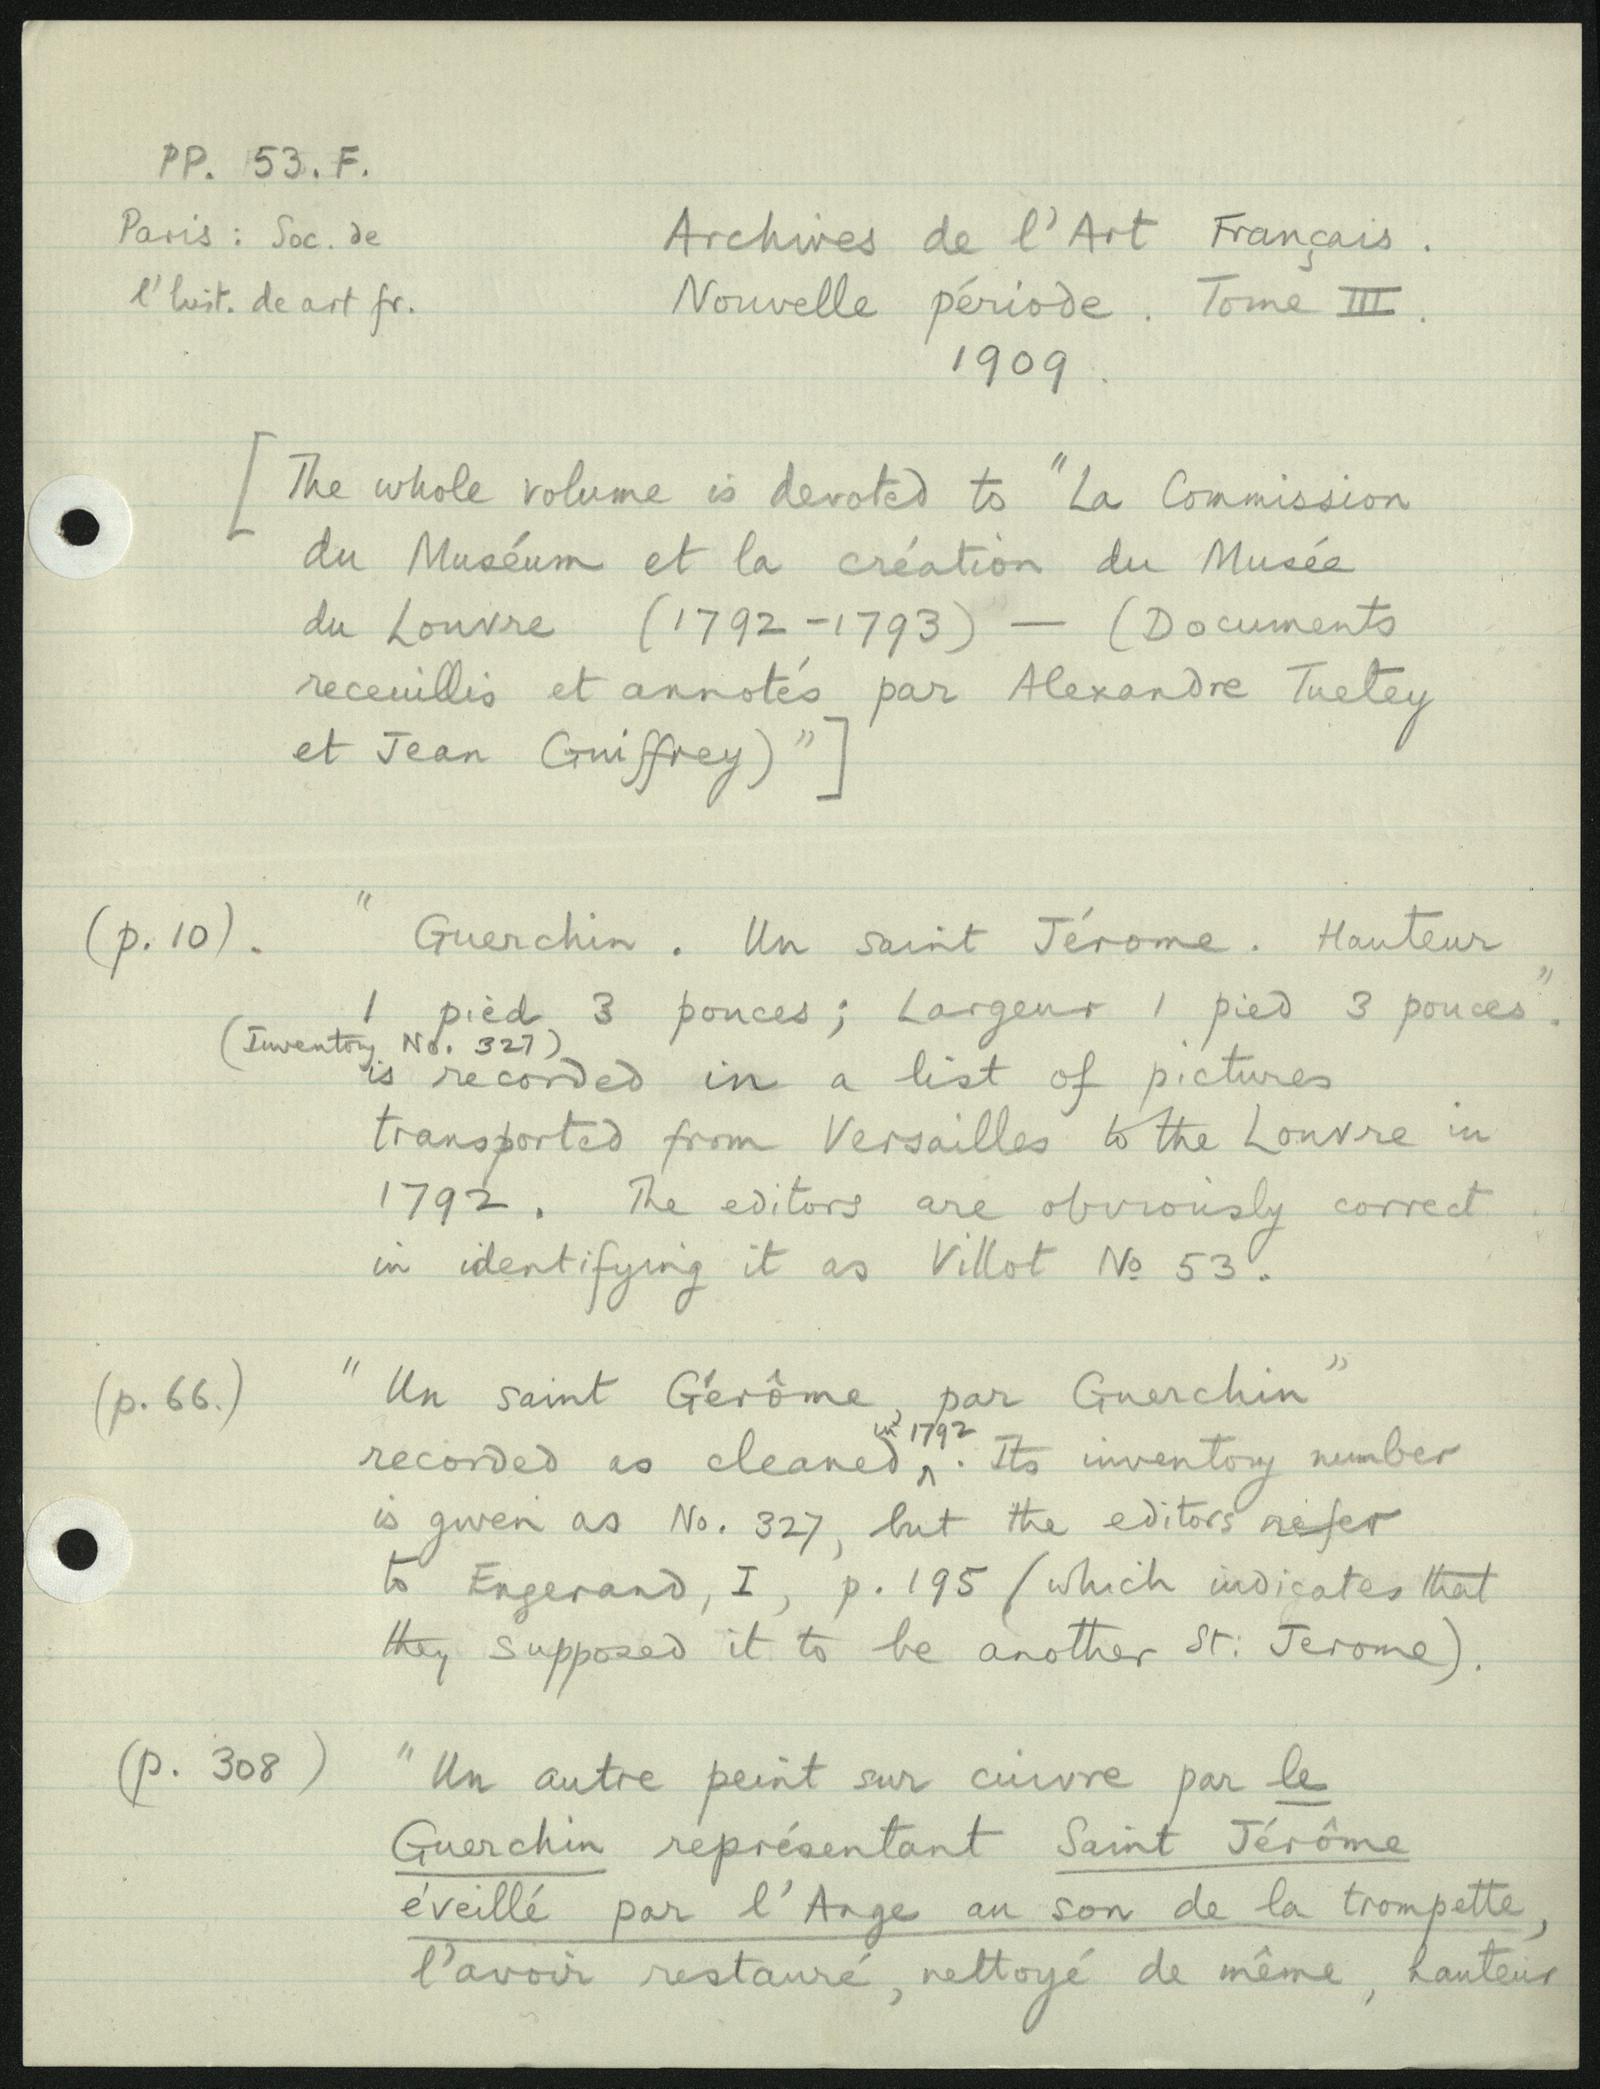 PP. 53. F.
Paris : Soc. de
l'hist. de art fr.
Archives de l'Art Français.
Nouvelle période. Tome III.
1909.
[ The whole volume is devoted to "La Commission
du Muséum et la création du Musée
du Louvre (1792-1793) — (Documents
receuillis et annotés par Alexandre Tuetey
et Jean Guiffrey)" ]
(p. 10). " Guerchin. Un saint Jérome. Hauteur
1 pied 3 pouces; Largeur 1 pied 3 pouces".
(Inventory No. 327)
is recorded in a list of pictures
transported from Versailles to the Louvre in
1792. The editors are obviously correct
in identifying it as Villot No 53.
(p. 66.) " Un saint Gérôme, par Guerchin"
recorded as cleaned in 1792. Its inventory number
is given as No. 327, but the editors refer
to Engerand, I, p. 195 (which indicates that
they supposed it to be another St. Jerome).
(p. 308) "Un autre peint sur cuivre par le
Guerchin représentant Saint Jérôme
éveillé par l'Ange au son de la trompette,
l'avoir restauré, nettoyé de même, hauteur